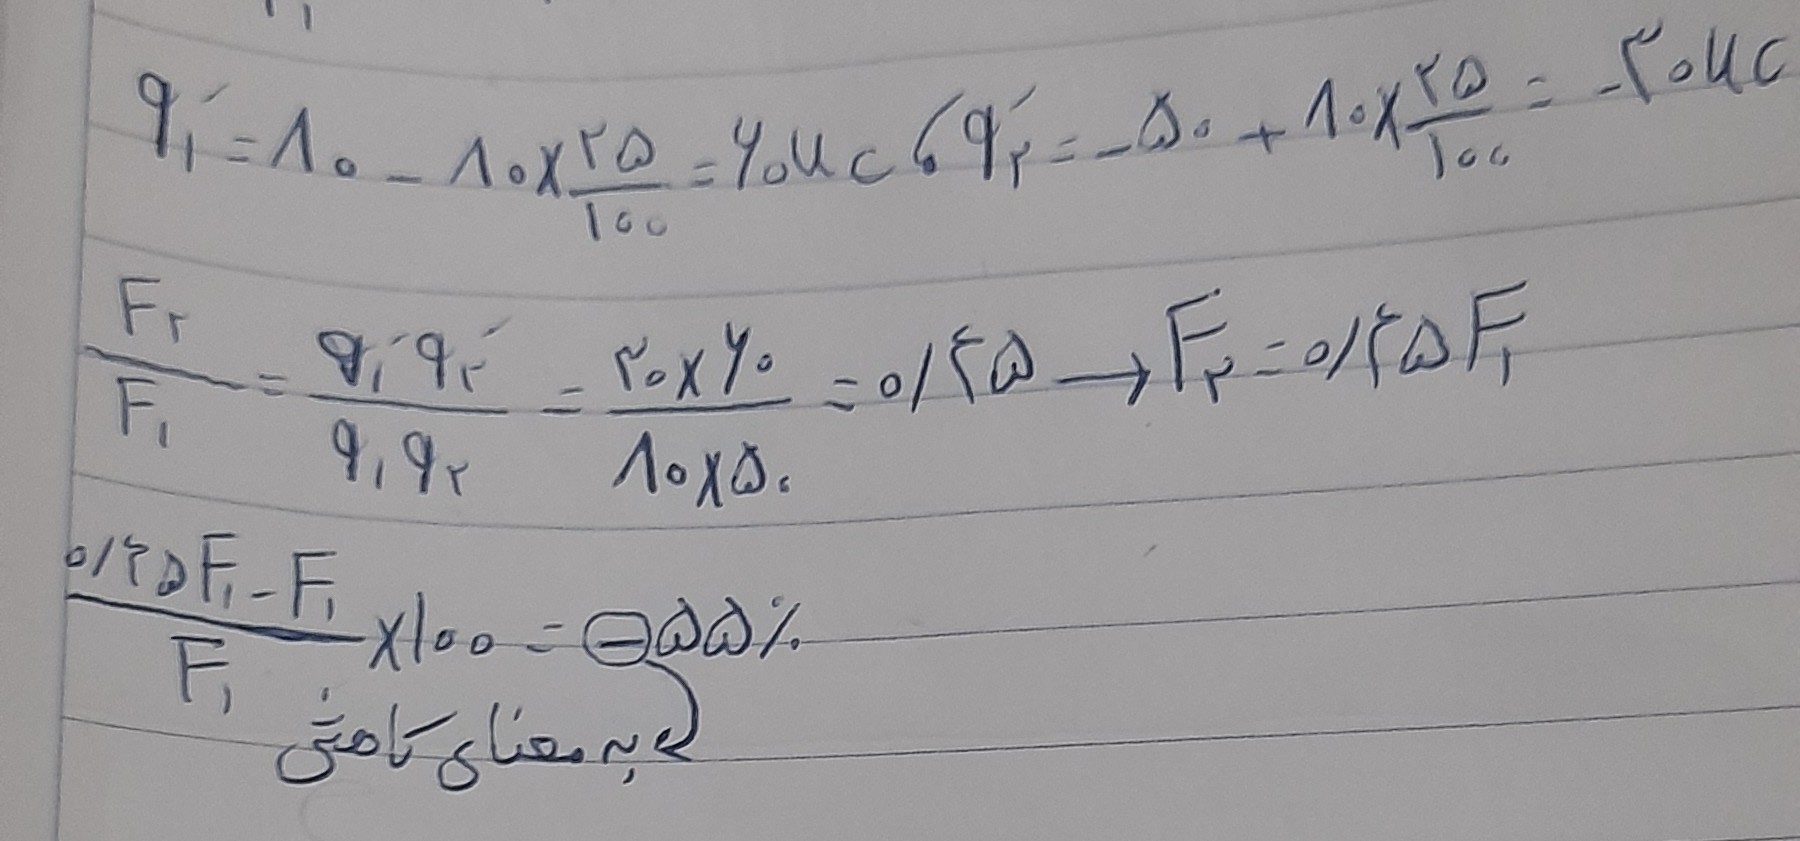 q́₁ = ۸۰ - ۸۰ × ۲۵/۱۰۰ = ۶۰ μc ، q́₂ = -۵۰ + ۸۰ × ۲۵/۱۰۰ = -۳۰ μc
F₂/F₁ = q́₁ q́₂ / q₁ q₂ = ۳۰×۶۰ / ۸۰×۵۰ = ۰/۴۵ → F₂ = ۰/۴۵ F₁
۰/۴۵F₁ - F₁ / F₁ × ۱۰۰ = -۵۵٪
به معنای کاهش